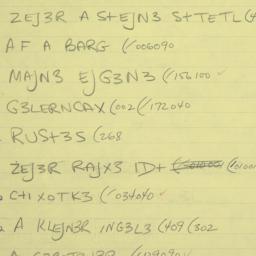 ZEJ3R A S+EJN3 S+TETL (4
AF A BARG (/006090
MAJN3 EJG3N3 (/156100 ✓
G3LERNCAX (002 (/172040
RUS+3S (268
ZEJ3R RAJX3 ID+ (/0100
C+I XOTK3 (/034040 ✓
A KLEJN3R ING3L3 (409 (302